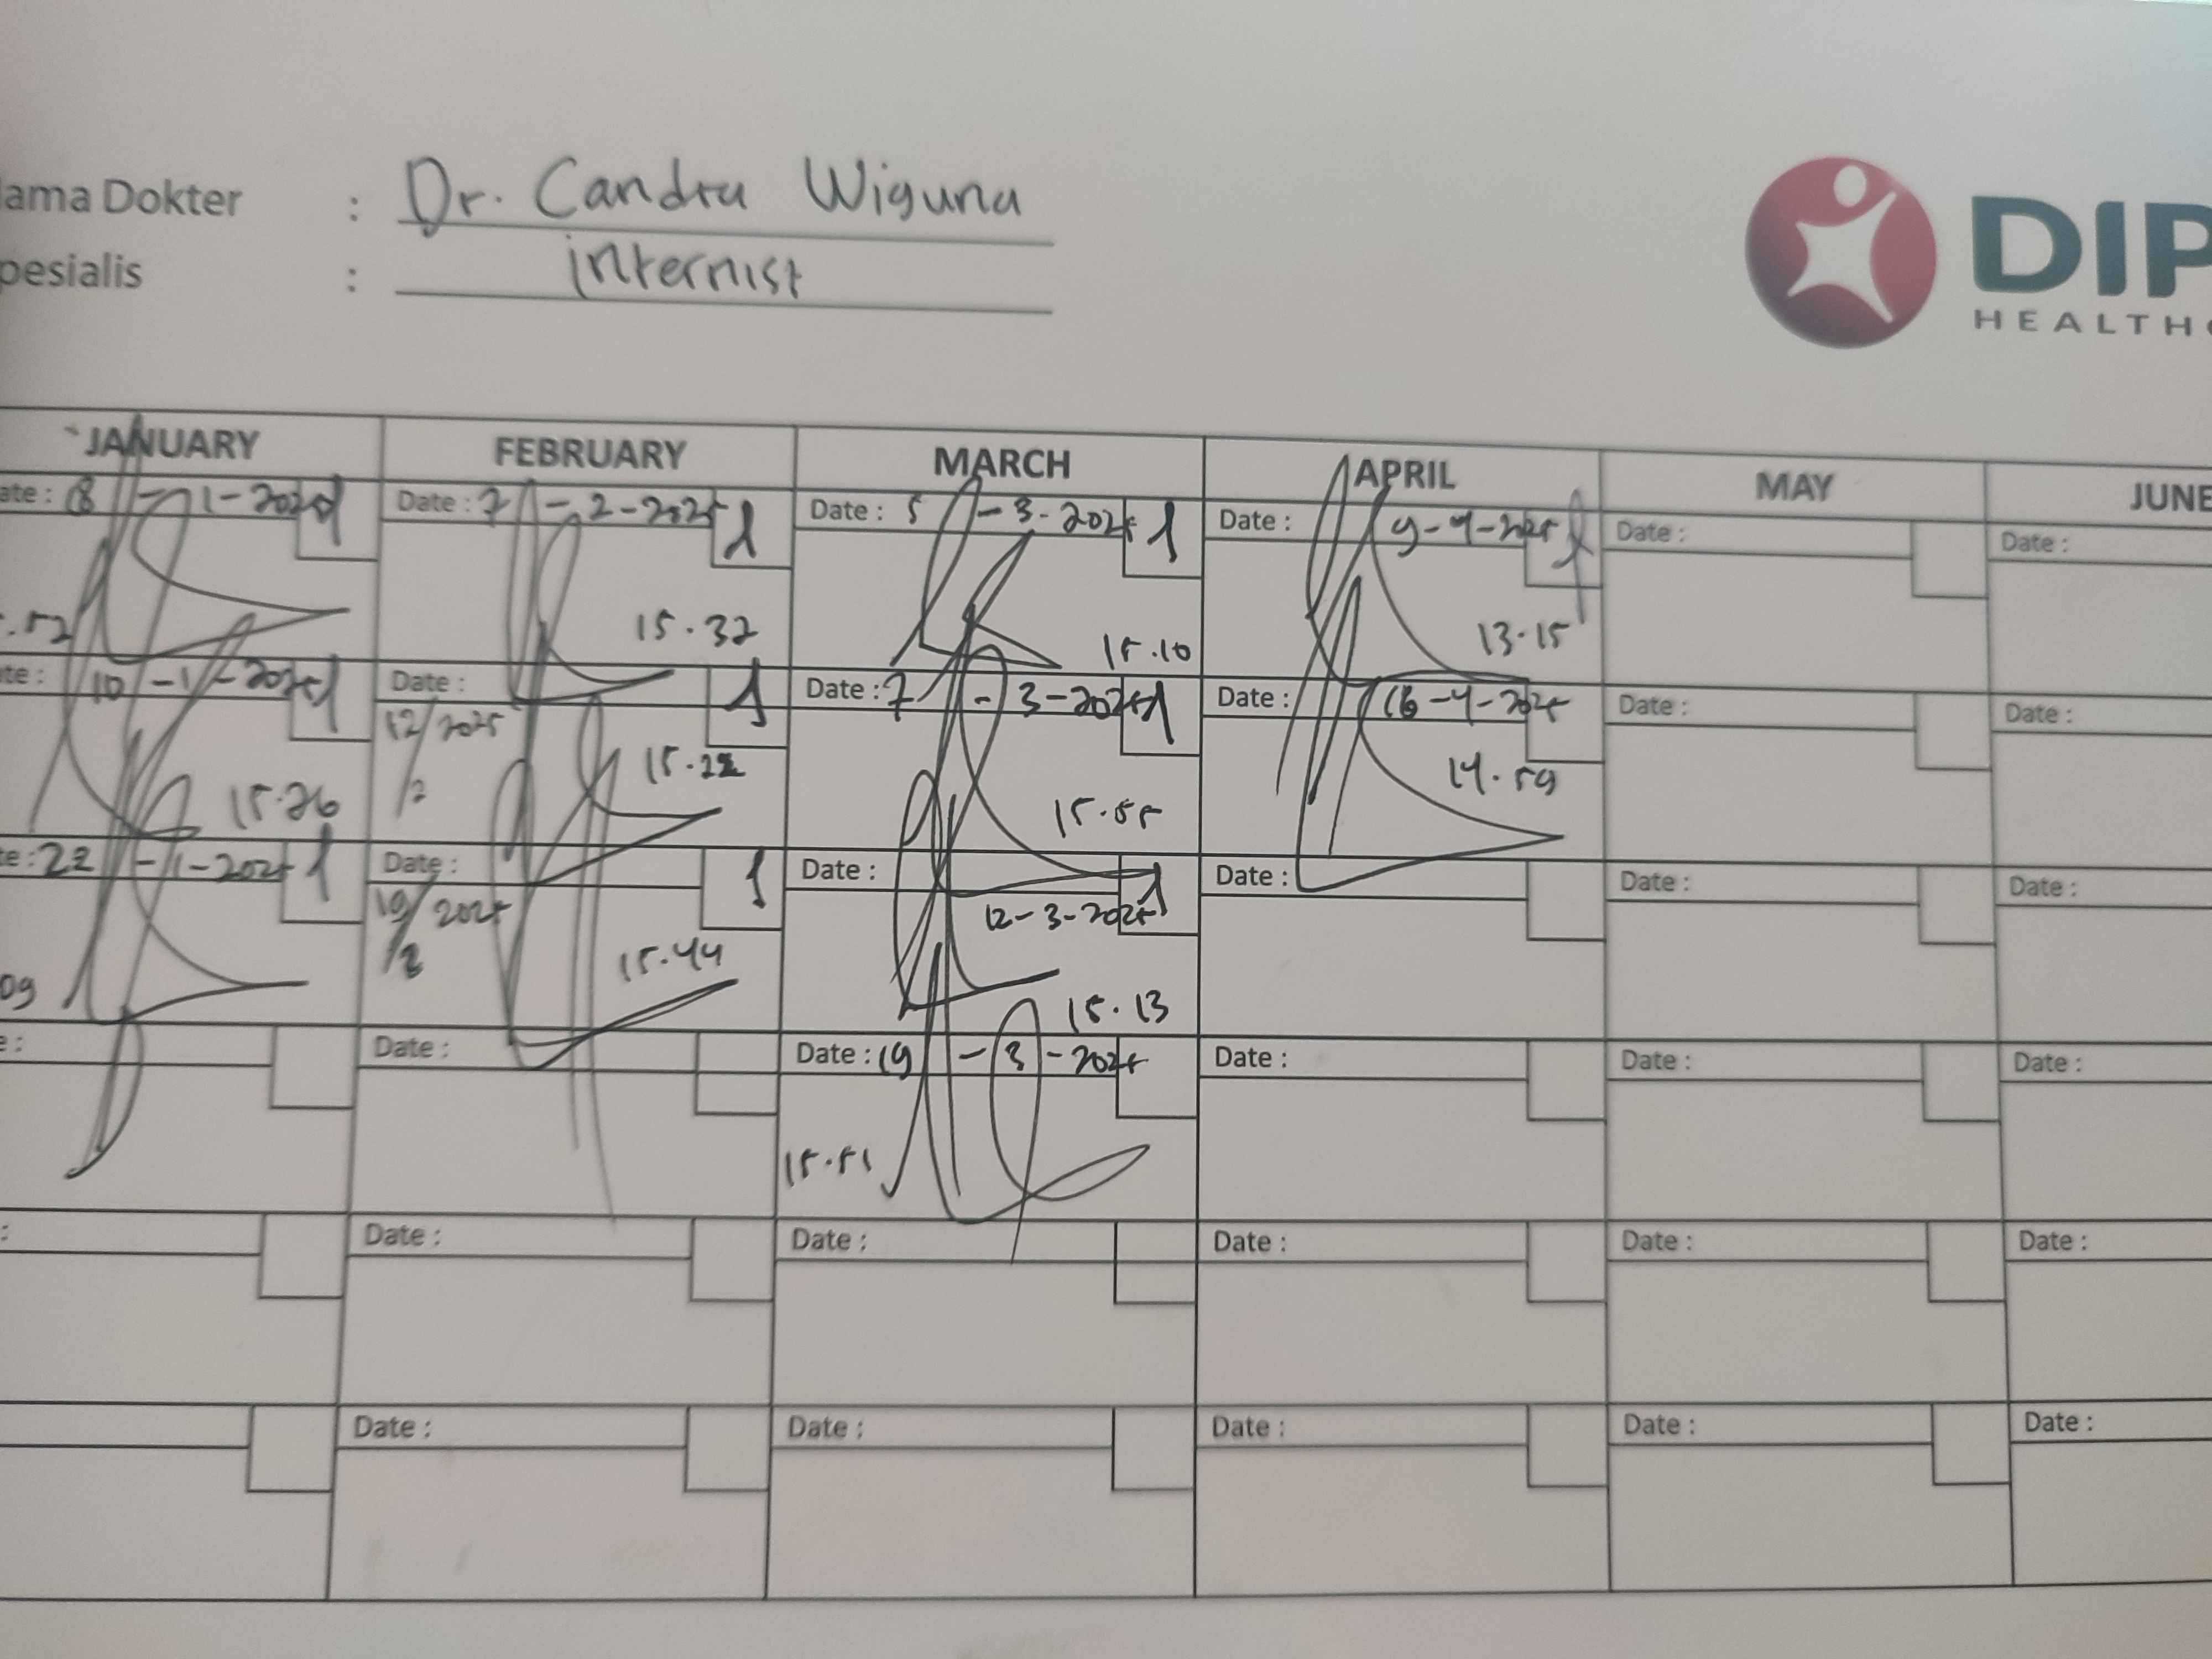 ama Dokter : Dr. Candra Wiguna
pesialis : internist
DIP
HEALTHC
JANUARY FEBRUARY MARCH APRIL MAY JUNE
ate : 8-1-2025 Date : 7-2-2025 1 Date : 5-3-2025 1 Date : 9-4-2025 Date : Date :
.52 15.32 15.10 13.15
te : 10-1-2025 1 Date : 12/2 2025 1 Date : 7-3-2025 1 Date : 16-4-2025 Date : Date :
15.26 15.22 15.55 14.59
e : 22-1-2025 1 Date : 19/2 2025 1 Date : 12-3-2025 1 Date : Date : Date :
09 15.44 15.13
e : Date : Date : 19-3-2025 Date : Date : Date :
15.51
: Date : Date : Date : Date : Date :
Date : Date : Date : Date : Date :